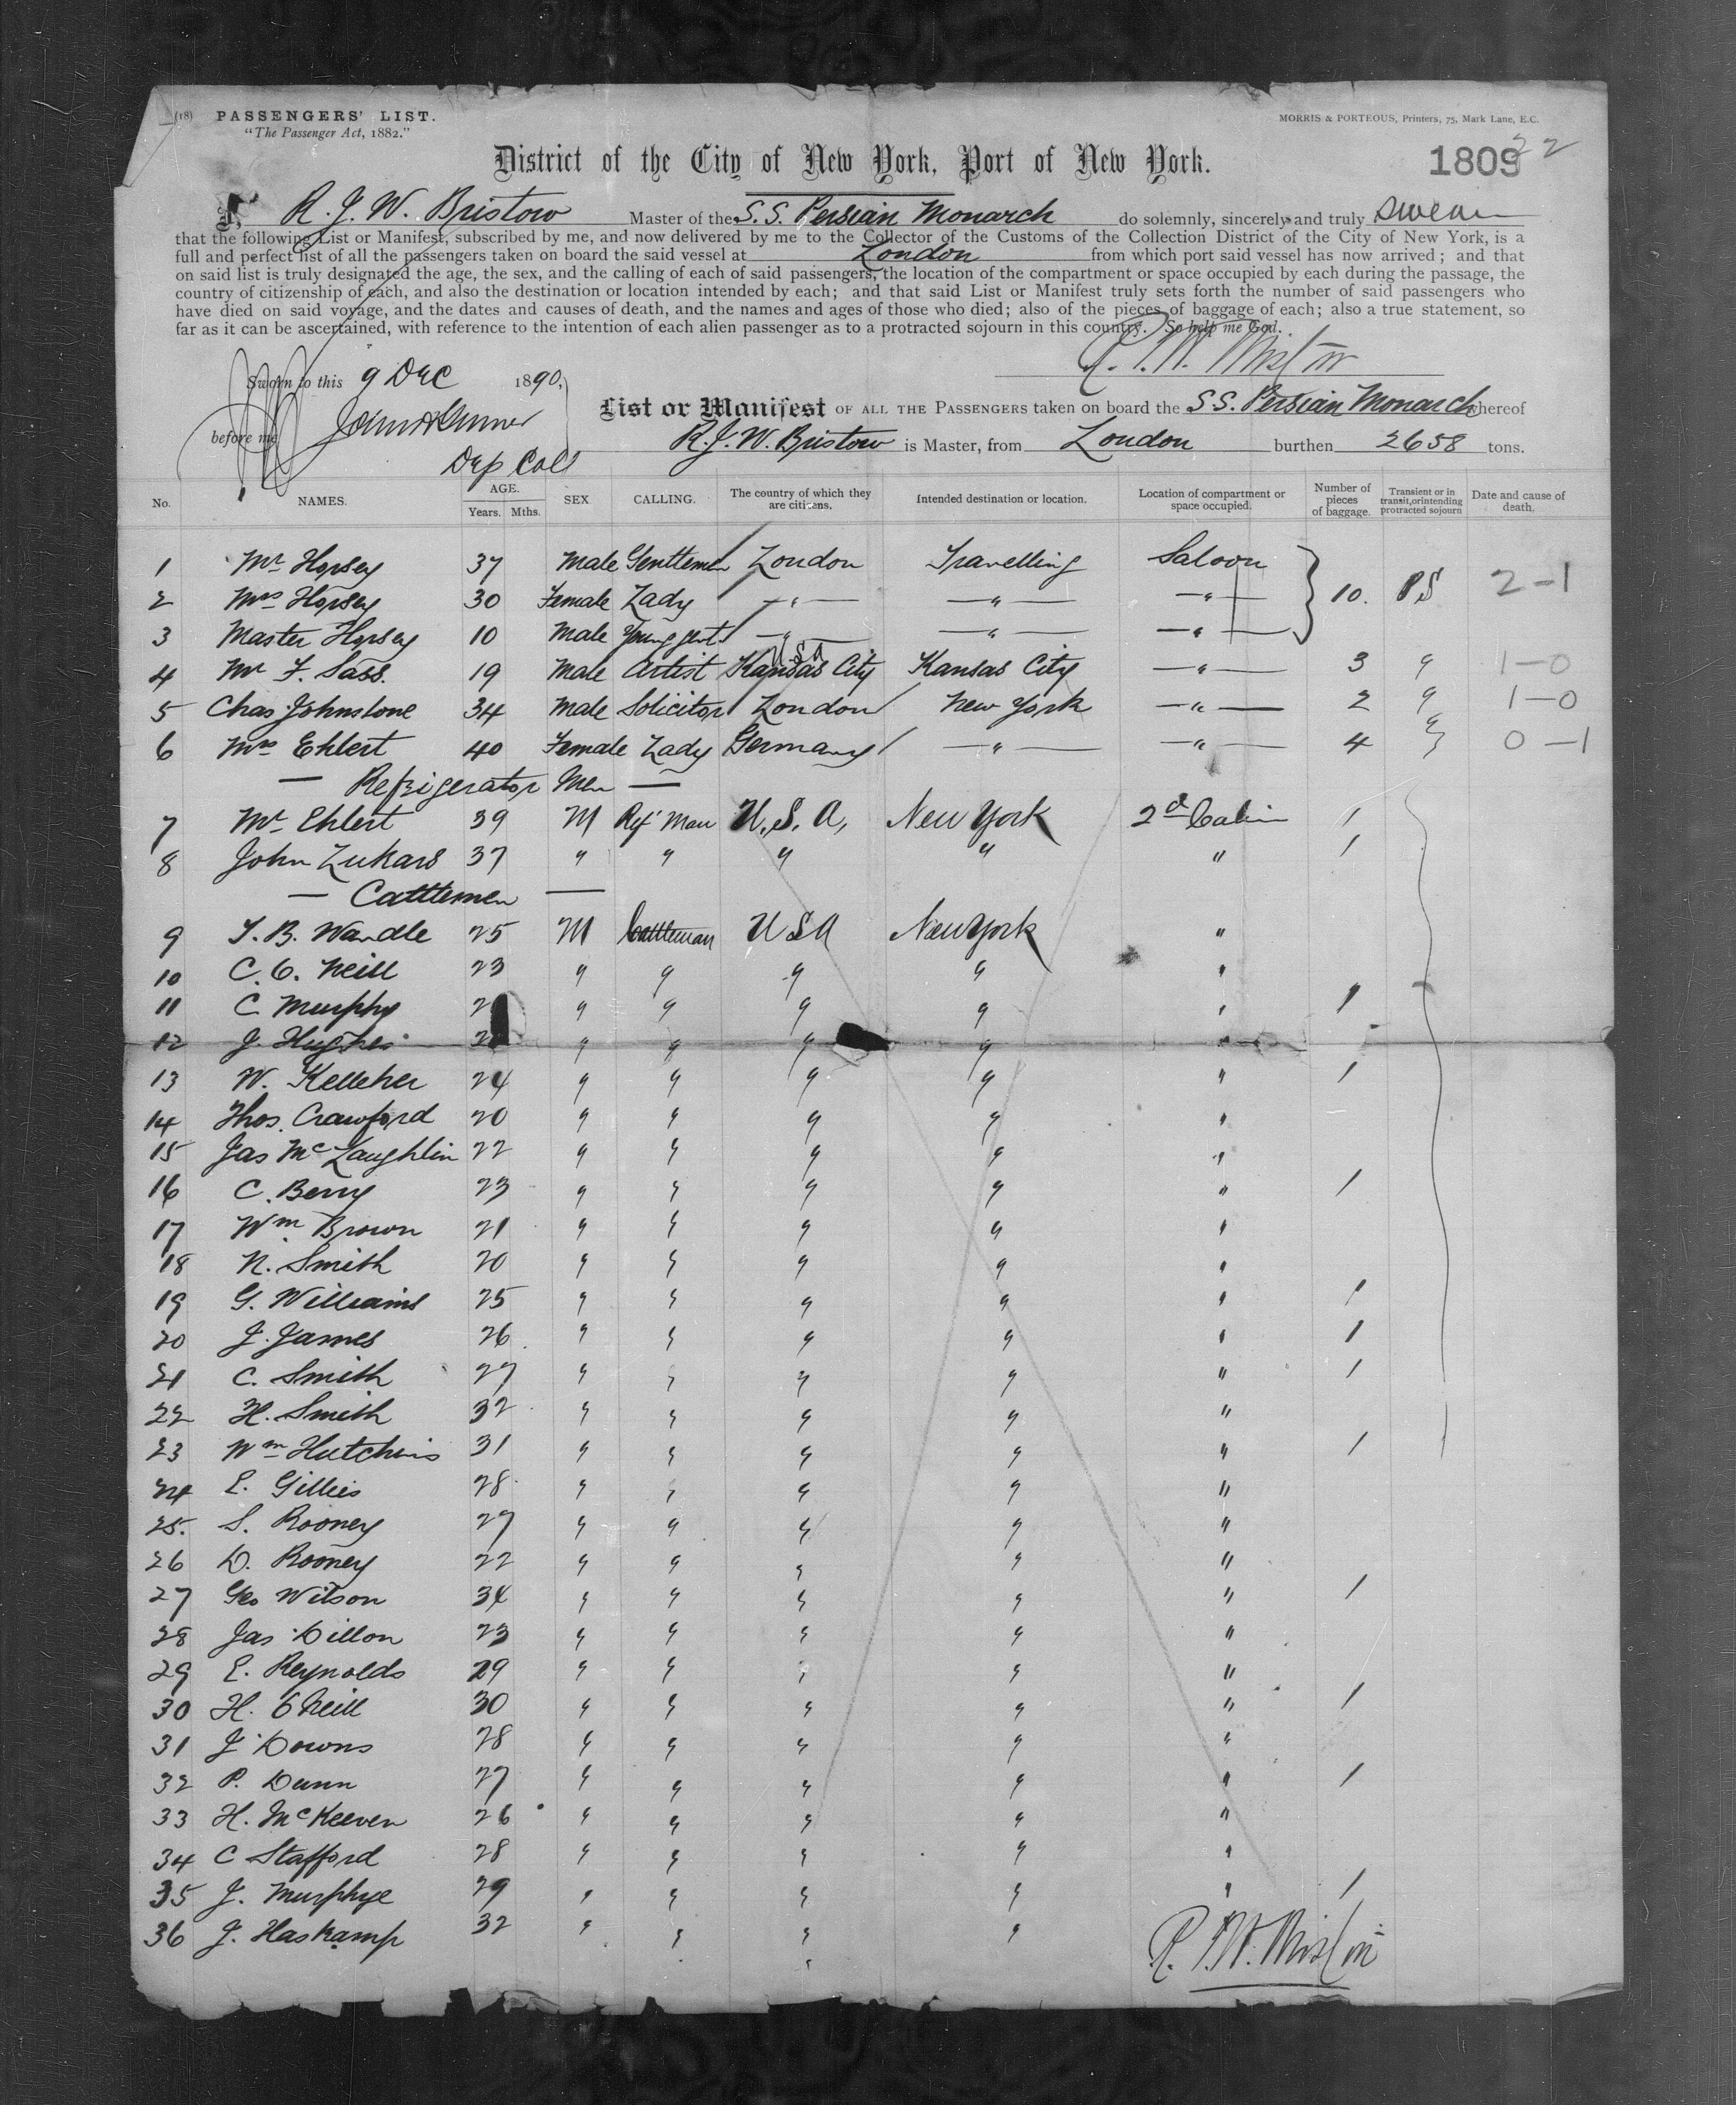 (18) PASSENGERS' LIST. MORRIS & PORTEOUS, Printers, 75, Mark Lane, E.C.
"The Passenger Act, 1882."
District of the City of New York, Port of New York. 1809 22
I, R. J. W. Bristow Master of the S. S. Persian Monarch do solemnly, sincerely and truly swear
that the following List or Manifest, subscribed by me, and now delivered by me to the Collector of the Customs of the Collection District of the City of New York, is a
full and perfect list of all the passengers taken on board the said vessel at London from which port said vessel has now arrived; and that
on said list is truly designated the age, the sex, and the calling of each of said passengers, the location of the compartment or space occupied by each during the passage, the
country of citizenship of each, and also the destination or location intended by each; and that said List or Manifest truly sets forth the number of said passengers who
have died on said voyage, and the dates and causes of death, and the names and ages of those who died; also of the pieces of baggage of each; also a true statement, so
far as it can be ascertained, with reference to the intention of each alien passenger as to a protracted sojourn in this country. So help me God.
Sworn to this 9 Dec 1890,
List or Manifest OF ALL THE PASSENGERS taken on board the S.S. Persian Monarch whereof
before me
R. J. W. Bristow is Master, from London burthen 2658 tons.
Dep Coll
No. NAMES. AGE. Years. Mths. SEX CALLING. The country of which they are citizens. Intended destination or location. Location of compartment or space occupied. Number of pieces of baggage. Transient or in transit, or intending protracted sojourn Date and cause of death.
1 Mr Horsey 37 Male Gentleman London Travelling Saloon
2 Mrs Horsey 30 Female Lady —"— —"— —"— 10. PS 2-1
3 Master Horsey 10 Male Young gent —"— —"— —"—
U S A
4 Mr F. Sass. 19 Male Artist Kansas City Kansas City —"— 3 " 1-0
5 Chas Johnstone 34 Male Solicitor London New York —"— 2 " 1-0
6 Mrs Ehlert 40 Female Lady Germany —"— —"— 4 " 0-1
— Refrigerator Men —
7 Mr Ehlert 39 M Ref' Man U. S. A, New York 2d Cabin 1
8 John Lukars 37 " " " " " 1
— Cattlemen —
9 T. B. Wandle 25 M Cattleman U S A New York "
10 C. O. Neill 23 " " " " "
11 C. Murphy 2 " " " " " 1
12 J. Hughes 2 " " " " "
13 W. Kelleher 24 " " " " " 1
14 Thos. Crawford 20 " " " " "
15 Jas McLaughlin 22 " " " " "
16 C. Berry 23 " " " " " 1
17 Wm Brown 21 " " " " "
18 N. Smith 20 " " " " "
19 G. Williams 25 " " " " " 1
20 J. James 26 " " " " " 1
21 C. Smith 27 " " " " " 1
22 H. Smith 32 " " " " "
23 Wm Hutchins 31 " " " " " 1
24 E. Gillies 28 " " " " "
25. S. Rooney 27 " " " " "
26 D. Rooney 22 " " " " "
27 Geo Wilson 34 " " " " " 1
28 Jas Dillon 23 " " " " "
29 E. Reynolds 29 " " " " "
30 H. O'Neill 30 " " " " " 1
31 J Downs 28 " " " " "
32 P. Dunn 27 " " " " " 1
33 H. McKeeven 26 " " " " "
34 C Stafford 28 " " " " "
35 J. Murphye 29 " " " " " 1
36 J. Haskamp 32 " " " "